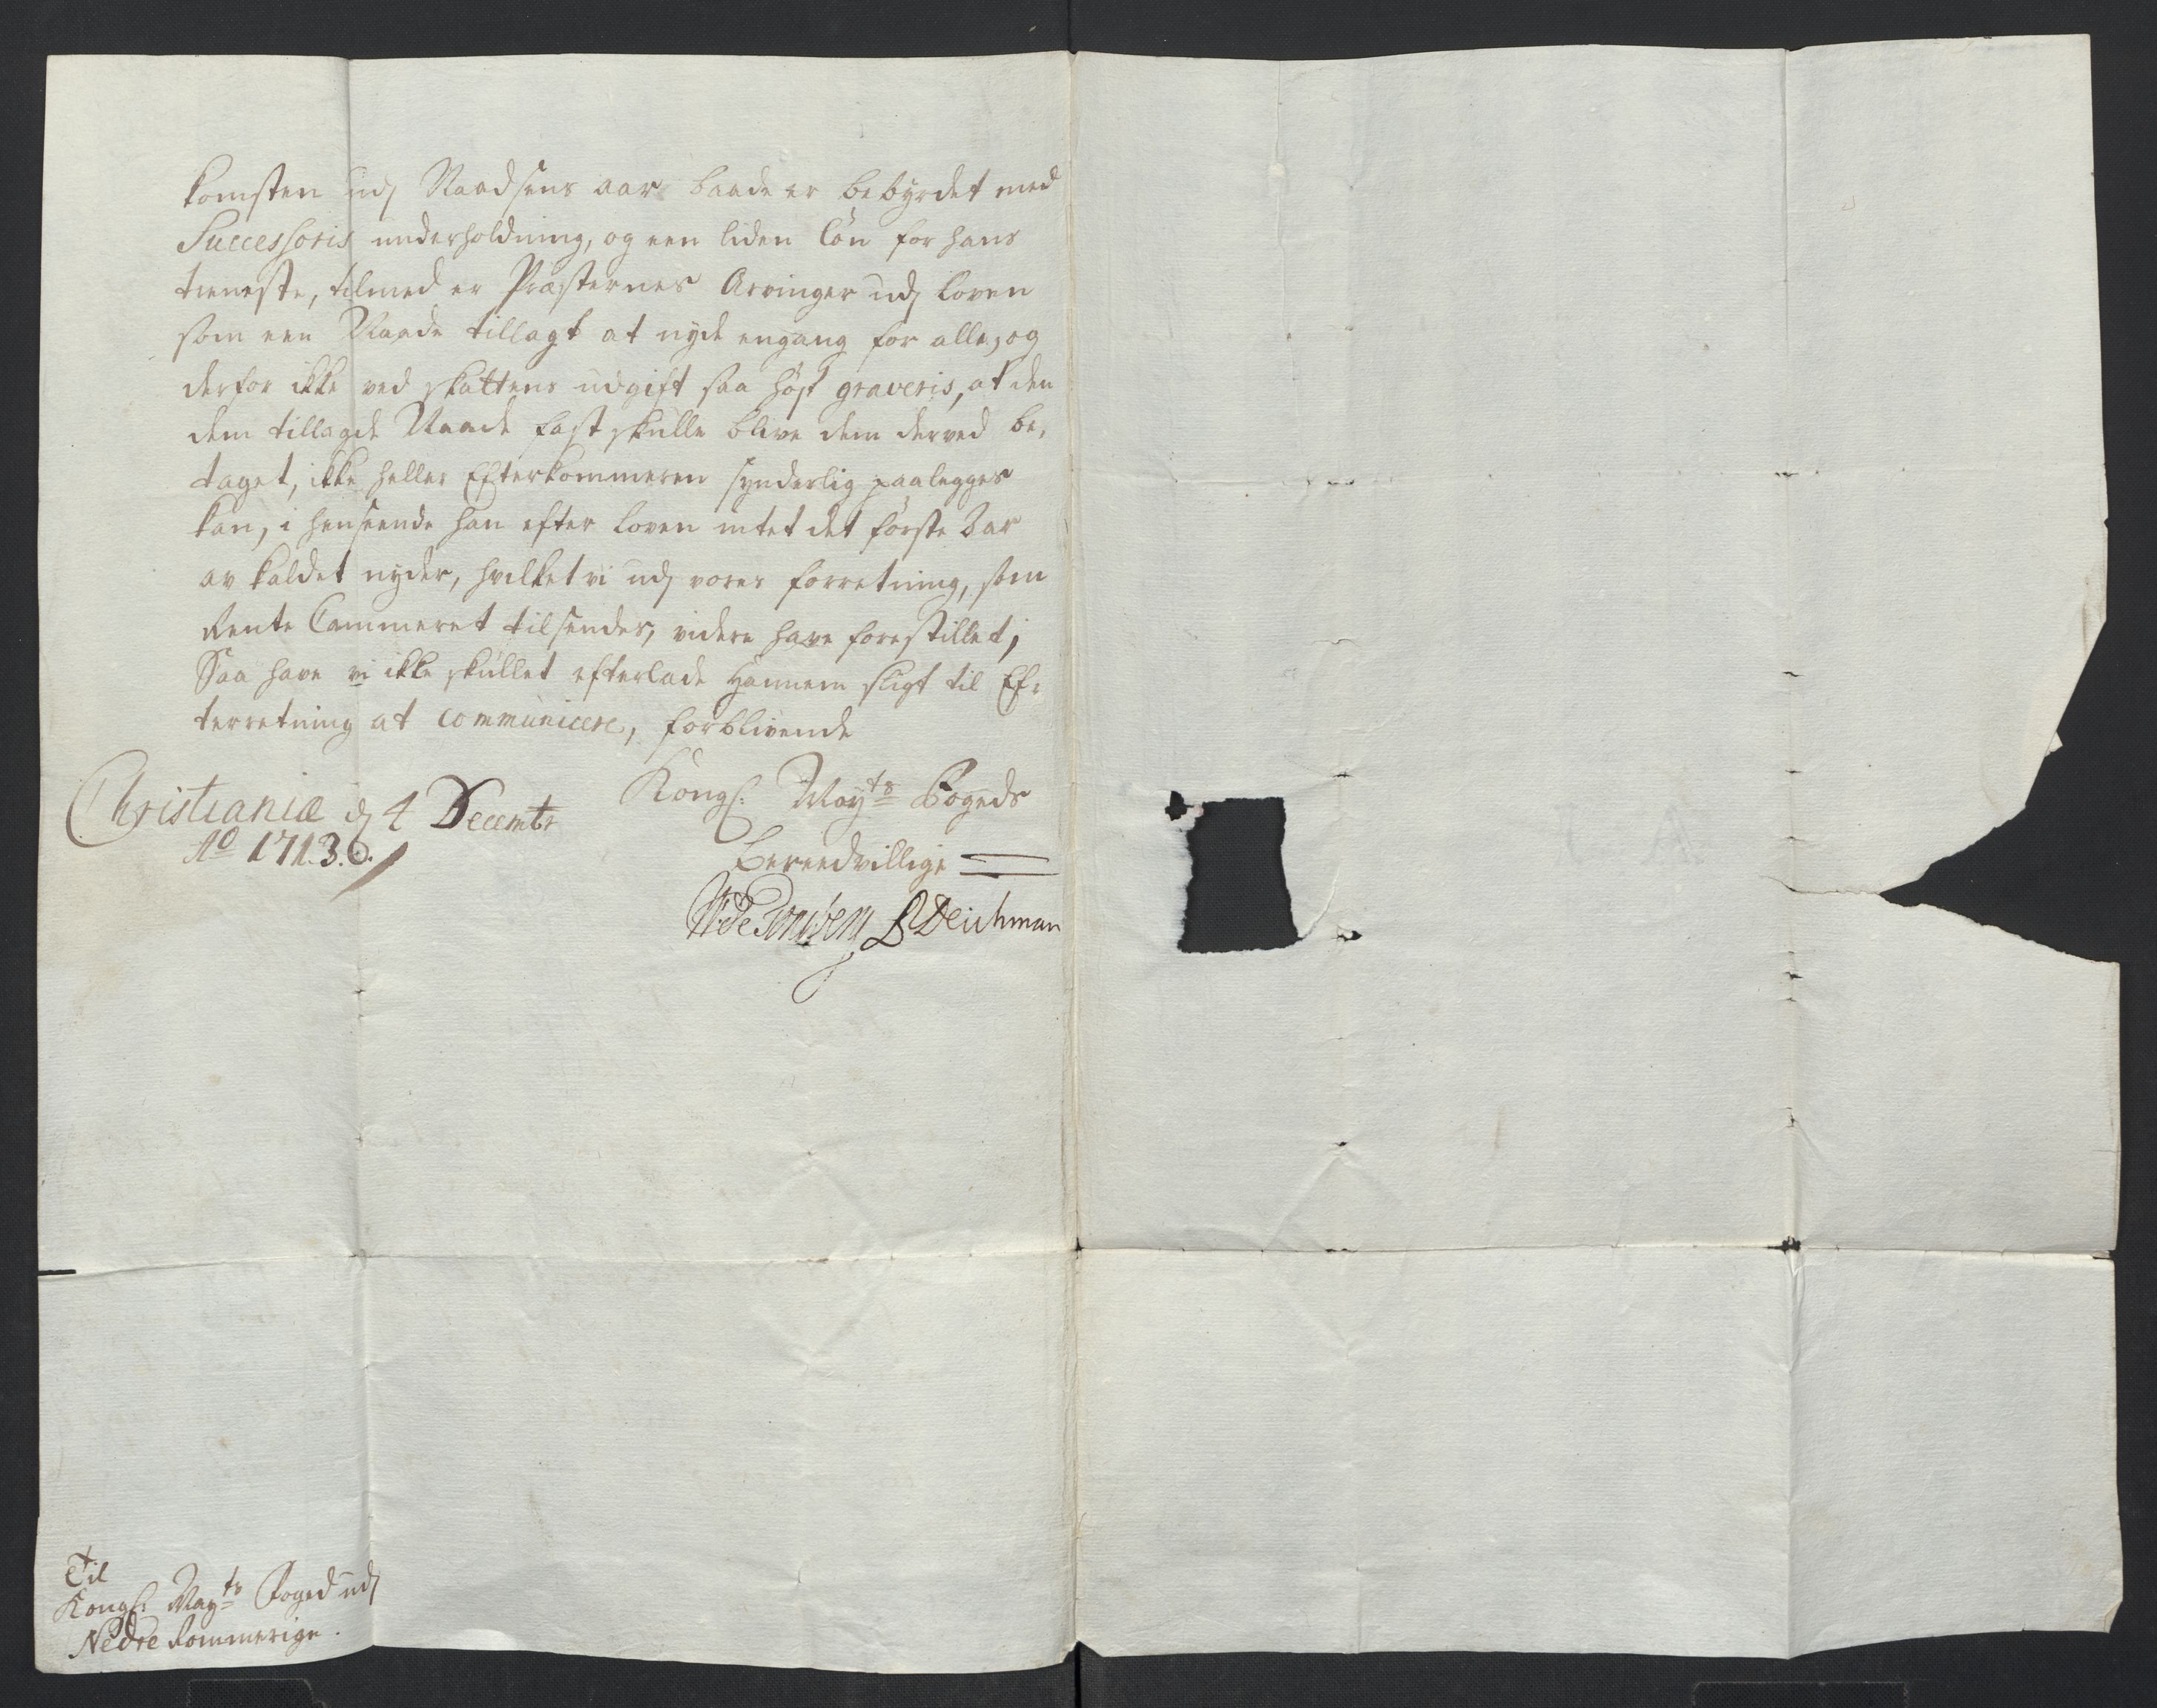 komsten udj Naadsens aar baade er bebyrdet med
Successoris underholdning, og een liden Løn for hans
tieneste, tilmed er Præsternes Arvinger udj Loven
som een Naade tillagt at nyde engang for alle, og
derfor ikke ved skattens udgift saa høyt graveris, at den
dem tillagde Naade fast skulle blive dem derved be,
taget, ikke heller Efterkommeren synderlig paalegges
kan, i henseende han efter Loven intet det første Aar
av kaldet nyder, hvilket vi udj vores forretning, som
Rente Cammeret tilsendes, videre have forestillet;
Saa have vi ikke skullet efterlade Hannem sligt til Ef:
terretning at communicere, forblivende
Kongl: Mayts Fogeds
Christianiæ dj 4 Decembr
Ao 1713.
Bereedvillige
B Deichman
Til
Kongl: Mayts Foged udj
Nedre Rommerige.